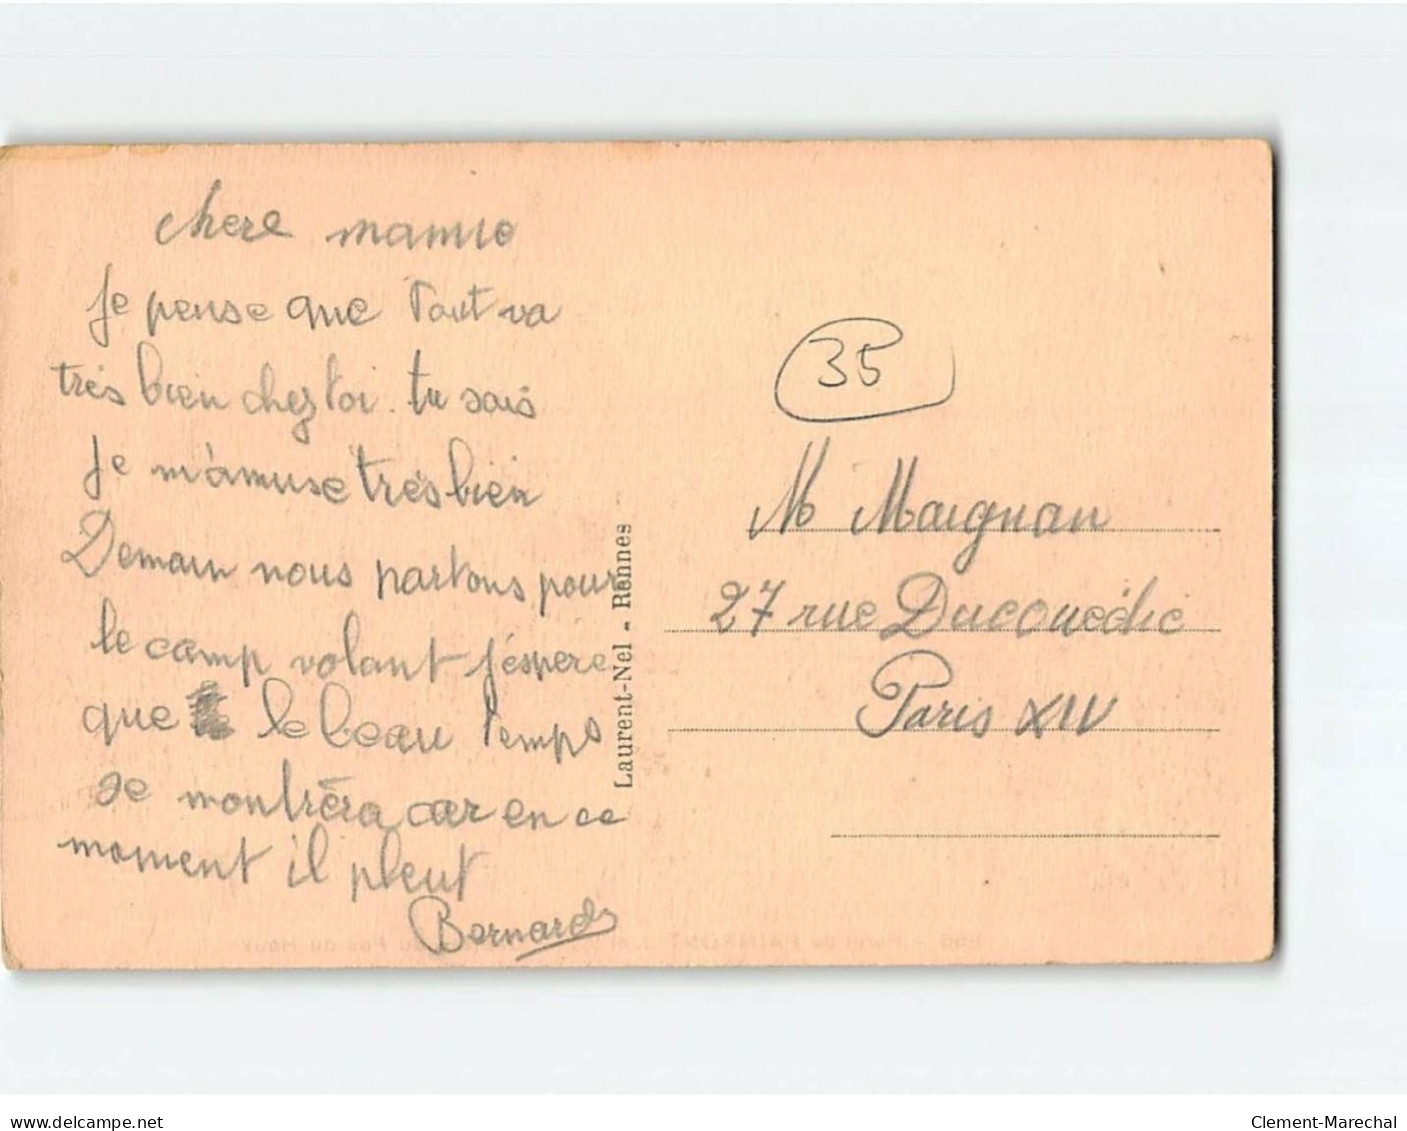 chere mamie
Je pense que Tout va
très bien chez toi. tu sais
Je m'amuse très bien
Demain nous partons pour
le camp volant j'éspere
que le beau temps
se montrera car en ce
moment il pleut
Bernard
Laurent-Nel - Rennes
35
M Maignan
27 rue Ducouëdic
Paris XIV
delcampe.net
Clement-Marechal